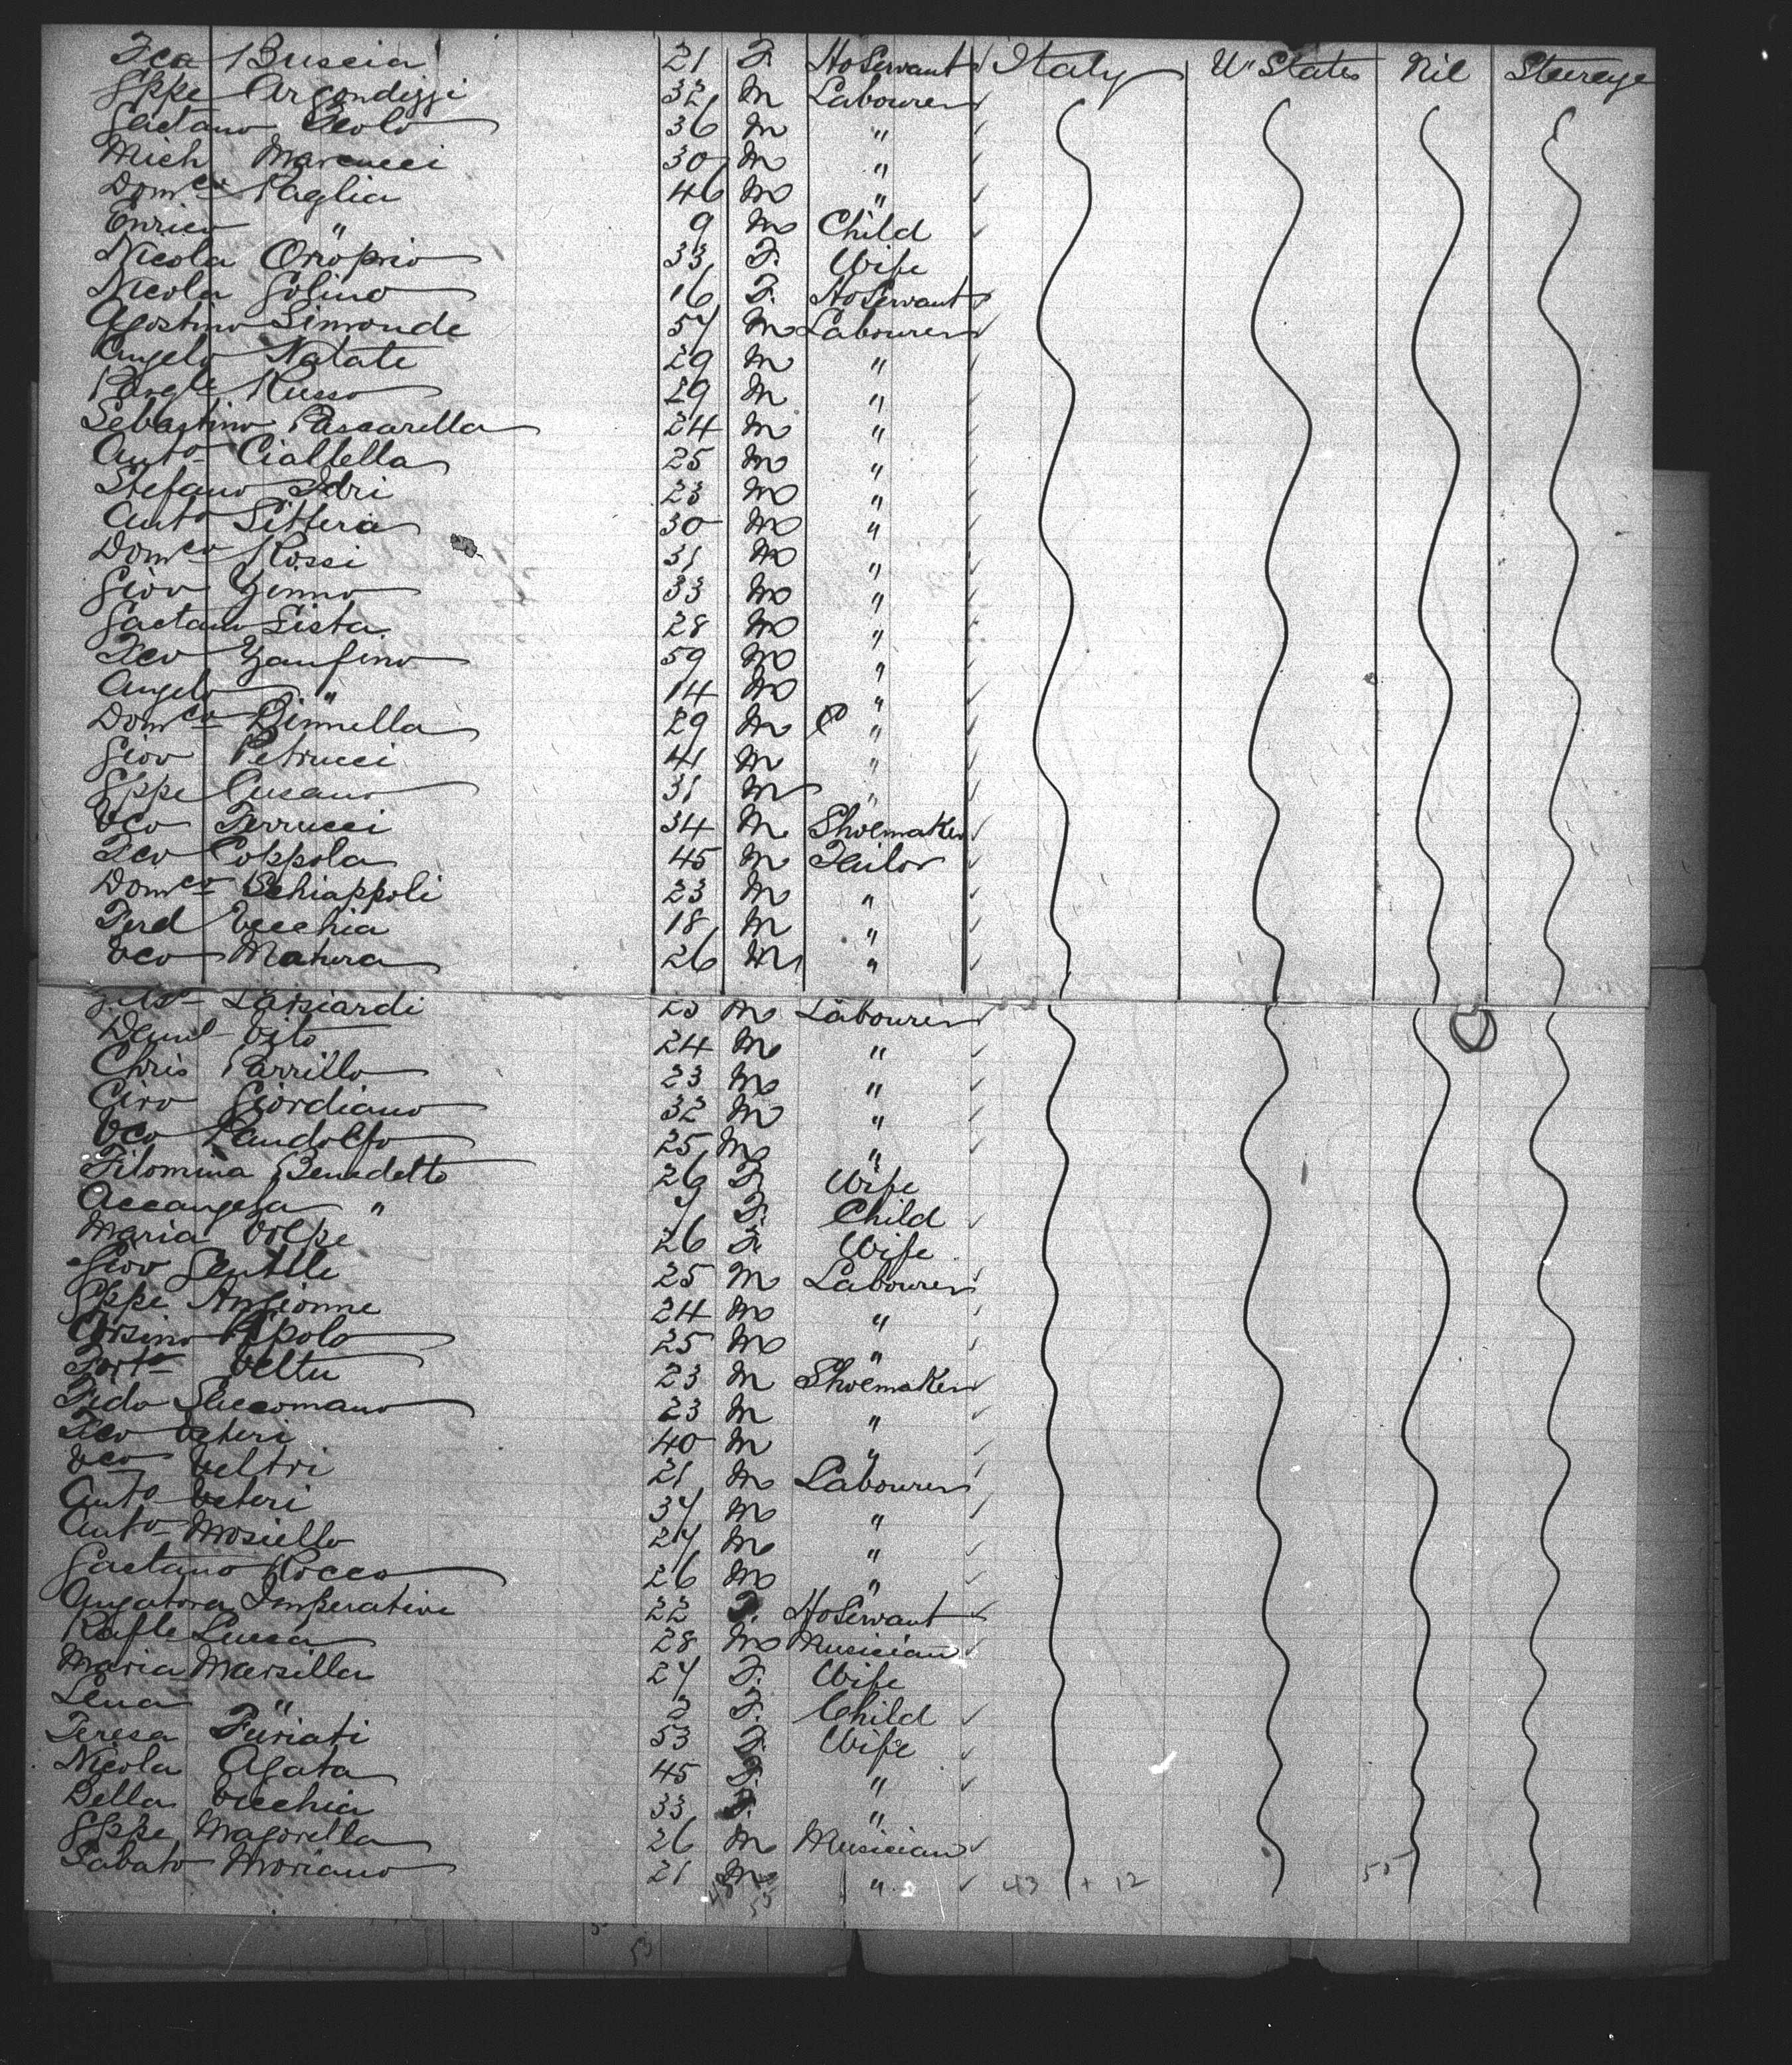 Fca Bruscia 21 F. HoServant Italy U. States Nil Steerage
Gppe Argondizzi 32 M Labourer
Gaetano Scolo 36 M "
Mich Marcucci 30 M "
Domco Paglia 46 M "
Enrico " 9 M Child
Nicola Oroprio 33 F. Wife
Nicola Golino 16 F. HoServant
Agostino Simonde 57 M Labourer
Angelo Natale 29 M "
Pasqle Russo 29 M "
Sebastino Pascarella 24 M "
Anto Cialfella 25 M "
Stefano Idri 23 M "
Anto Sittera 30 M "
Domco Rossi 31 M "
Giov Zenno 33 M "
Gaetano Sista 28 M "
Fco Zanfino 59 M "
Angelo " 14 M "
Domco Dinnella 29 M "
Giov Petrucci 41 M "
Gppe Cusano 31 M "
Vco Ferrucci 34 M Shoemaker
Fco Coppola 45 M Tailor
Domco Schiappoli 23 M "
Ferd Vecchia 18 M "
Vco Matera 26 M "
Larsiardi 23 M Labourer
Deml Vito 24 M "
Chris Parrillo 23 M "
Ciro Giordiano 32 M "
Vco Pandolfo 25 M "
Filomina Benedetto 26 F. Wife
Accangela " 7 F. Child
Maria Volpe 26 F. Wife
Giov Gentile 25 M Labourer
Gppe Angionne 24 M "
Orsino Apolo 25 M "
Forto Veltu 23 M Shoemaker
Fedo Saccomano 23 M "
Fco Veteri 40 M "
Vco Veltri 21 M Labourer
Anto Veteri 37 M "
Anto Mosiello 27 M "
Gaetano Rocco 26 M "
Angatora Imperative 22 F. HoServant
Rafle Lucca 28 M Musician
Maria Marsilla 27 F. Wife
Lena " 2 F. Child
Teresa Furiati 53 F. Wife
Nicola Agata 45 F. "
Della Vecchia 33 F. "
Gppe Magorella 26 M Musician
Sabato Moriano 21 M "
43 + 12 55
53